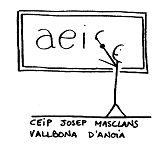 aeis
CEIP JOSEP MASCLANS
VALLBONA D'ANOIA